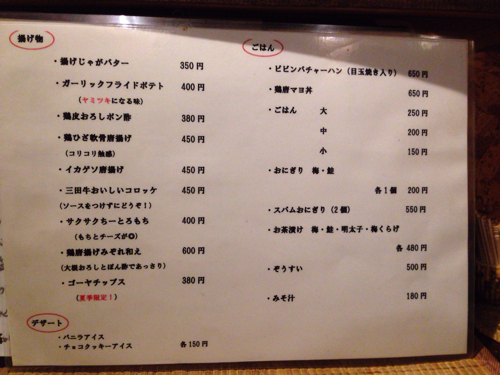 揚げ物
・揚げじゃがバター 350円
・ガーリックフライドポテト 400円
(ヤミツキになる味)
・鶏皮おろしポン酢 380円
・鶏ひざ軟骨唐揚げ 450円
(コリコリ触感)
・イカゲソ唐揚げ 450円
・三田牛おいしいコロッケ 450円
(ソースをつけずにどうぞ!)
・サクサクちーとろもち 400円
(もちとチーズが◎)
・鶏唐揚げみぞれ和え 600円
(大根おろしとぽん酢であっさり)
・ゴーヤチップス 380円
(夏季限定!)
デザート
・バニラアイス
・チョコクッキーアイス 各150円
ごはん
・ビビンバチャーハン(目玉焼き入り) 650円
・鶏唐マヨ丼 650円
・ごはん 大 250円
中 200円
小 150円
・おにぎり 梅・鮭
各1個 200円
・スパムおにぎり(2個) 550円
・お茶漬け 梅・鮭・明太子・梅くらげ
各 480円
・ぞうすい 500円
・みそ汁 180円